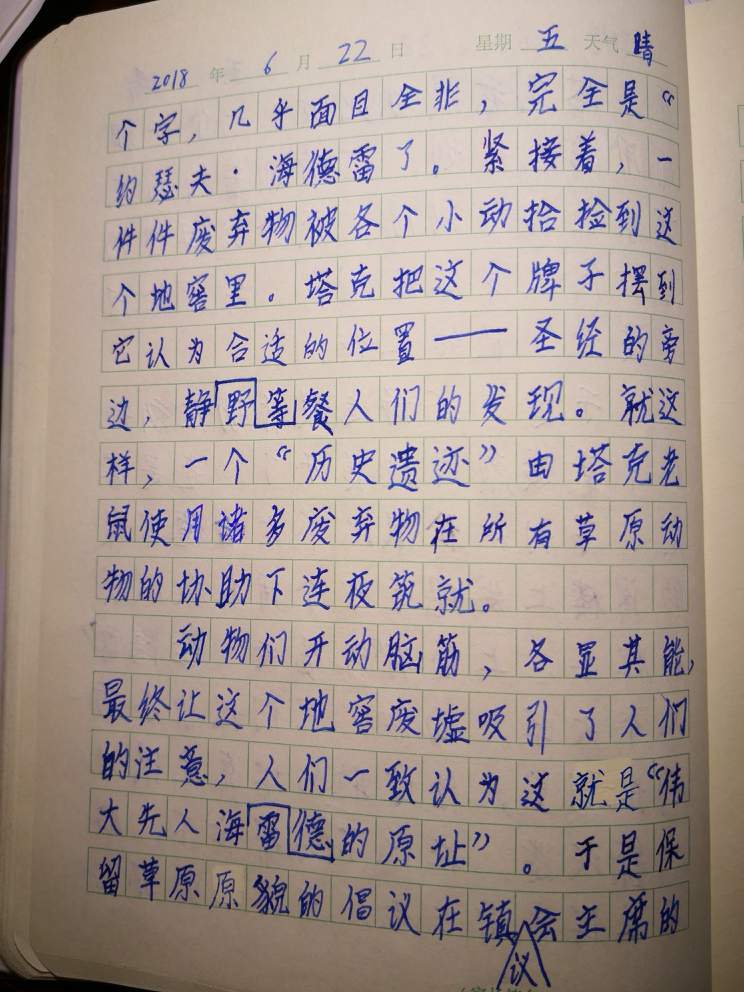 2018 年 6 月 22 日 星期 五 天气 晴
个字，几乎面目全非，完全是“
约瑟夫·海德雷了。紧接着，一
件件废弃物被各个小动拾捡到这
个地窖里。塔克把这个牌子摆到
它认为合适的位置——圣经的旁
边，静野等餐人们的发现。就这
样，一个“历史遗迹”由塔克老
鼠使用诸多废弃物在所有草原动
物的协助下连夜筑就。
动物们开动脑筋，各显其能，
最终让这个地窖废墟吸引了人们
的注意，人们一致认为这就是“伟
大先人海雷德的原址”。于是保
留草原原貌的倡议在镇会主席的
议